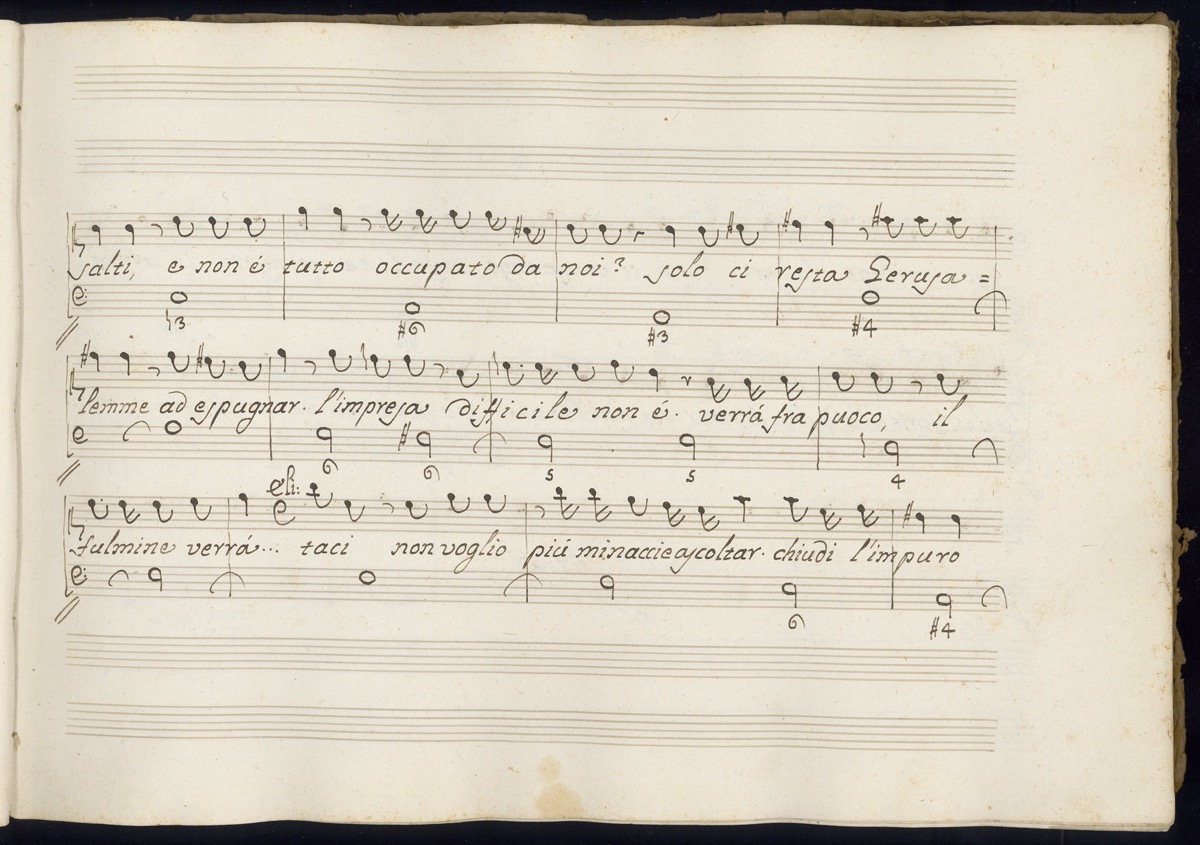 salti, e non é tutto occupato da noi? solo ci resta Gerusa =
♮3 #6 #3 #4
lemme ad espugnar. l'impresa difficile non é. verrá fra puoco, il
6 6 5 5 4
eli:
fulmine verrá... taci non voglio piú minaccie ascoltar. chiudi l'impuro
6 #4